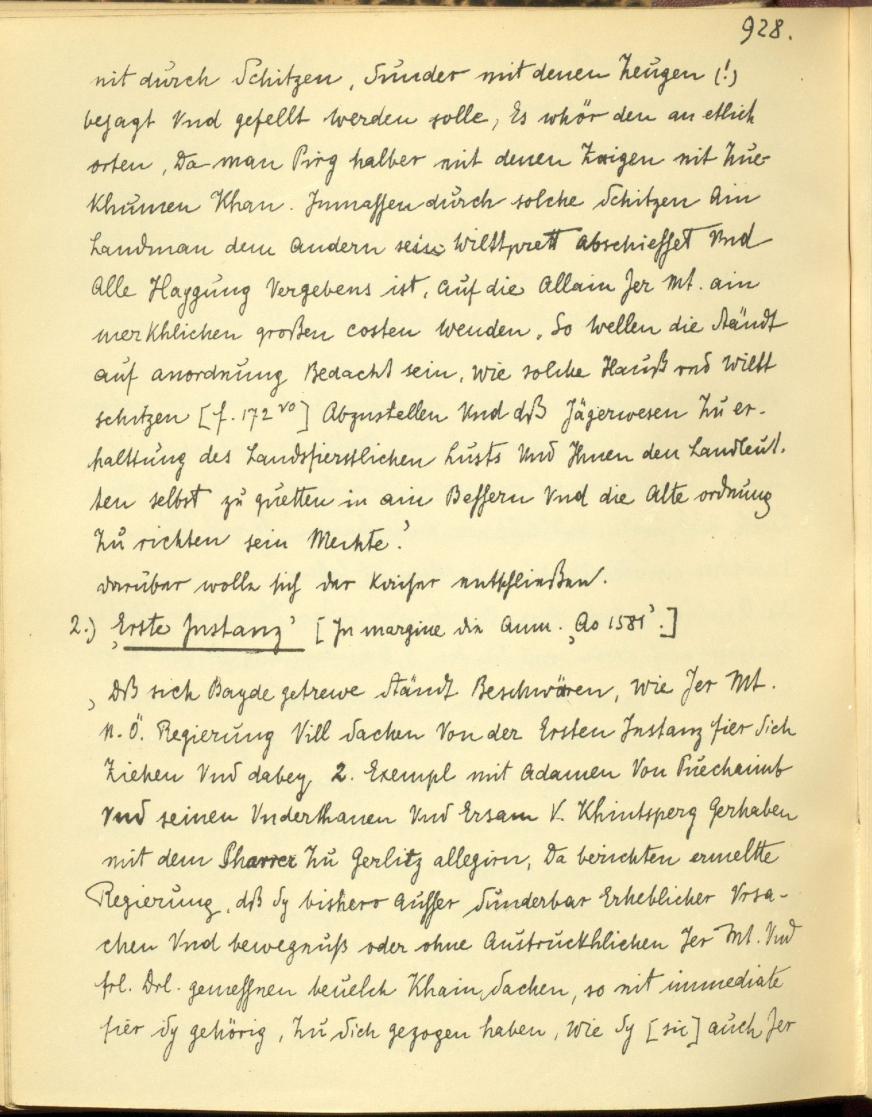 928.
nit durch Schitzen, Sunder mit denen Zeugen (!)
bejagt Vnd gefellt werden solle, Es whör den an etlich
orten, Da man Pirg halber mit denen Zeigen nit Zue-
Khumen Khan. Inmassen durch solche Schitzen Ain
Landman dem andern sein Wilttprett Abschiesset Vnd
Alle Haygung Vergebens ist, auf die Allain Jer Mt. ain
merkhlichen großen costen wenden. So wellen die Ständt
auf anordnung Bedacht sein, wie solche Hauß vnd Wiltt
schitzen [f. 172 vo] Abzustellen Vnd dß Jägerwesen Zu er-
halttung des Landsfierstlichen Lusts Vnd Ihnen den Landleut-
ten selbst zu guetten in ain Bessern Vnd die Alte ordnung
Zu richten sein Mechte.'
darüber wolle sich der Kaiser entschließen.
2.) ‚Erste Instanz' [In margine die Anm. ‚Ao 1581'.]
‚Dß sich Bayde getrewe Ständt Beschwären, wie Jer Mt.
N. Ö. Regierung Vill Sachen Von der Ersten Instanz fier Sich
Ziehen Vnd dabey 2. Exempl mit Adamen Von Puechaimb
Vnd seinen Vnderthanen Vnd Ersam V. Khintsperg Gerhaben
mit dem Pharrer Zu Gerlitz allegirn, Da berichten ermeltte
Regierung, dß Sy bishero Ausser Sunderbar Erheblicher Vrsa-
chen Vnd bewegnuß oder ohne Austruckhlichen Jer Mt. Vnd
frl. Drl. gemessnen beuelch Khain Sachen, so nit immediate
fier sy gehörig, Zu Sich gezogen haben, Wie Sy [sic] auch Jer